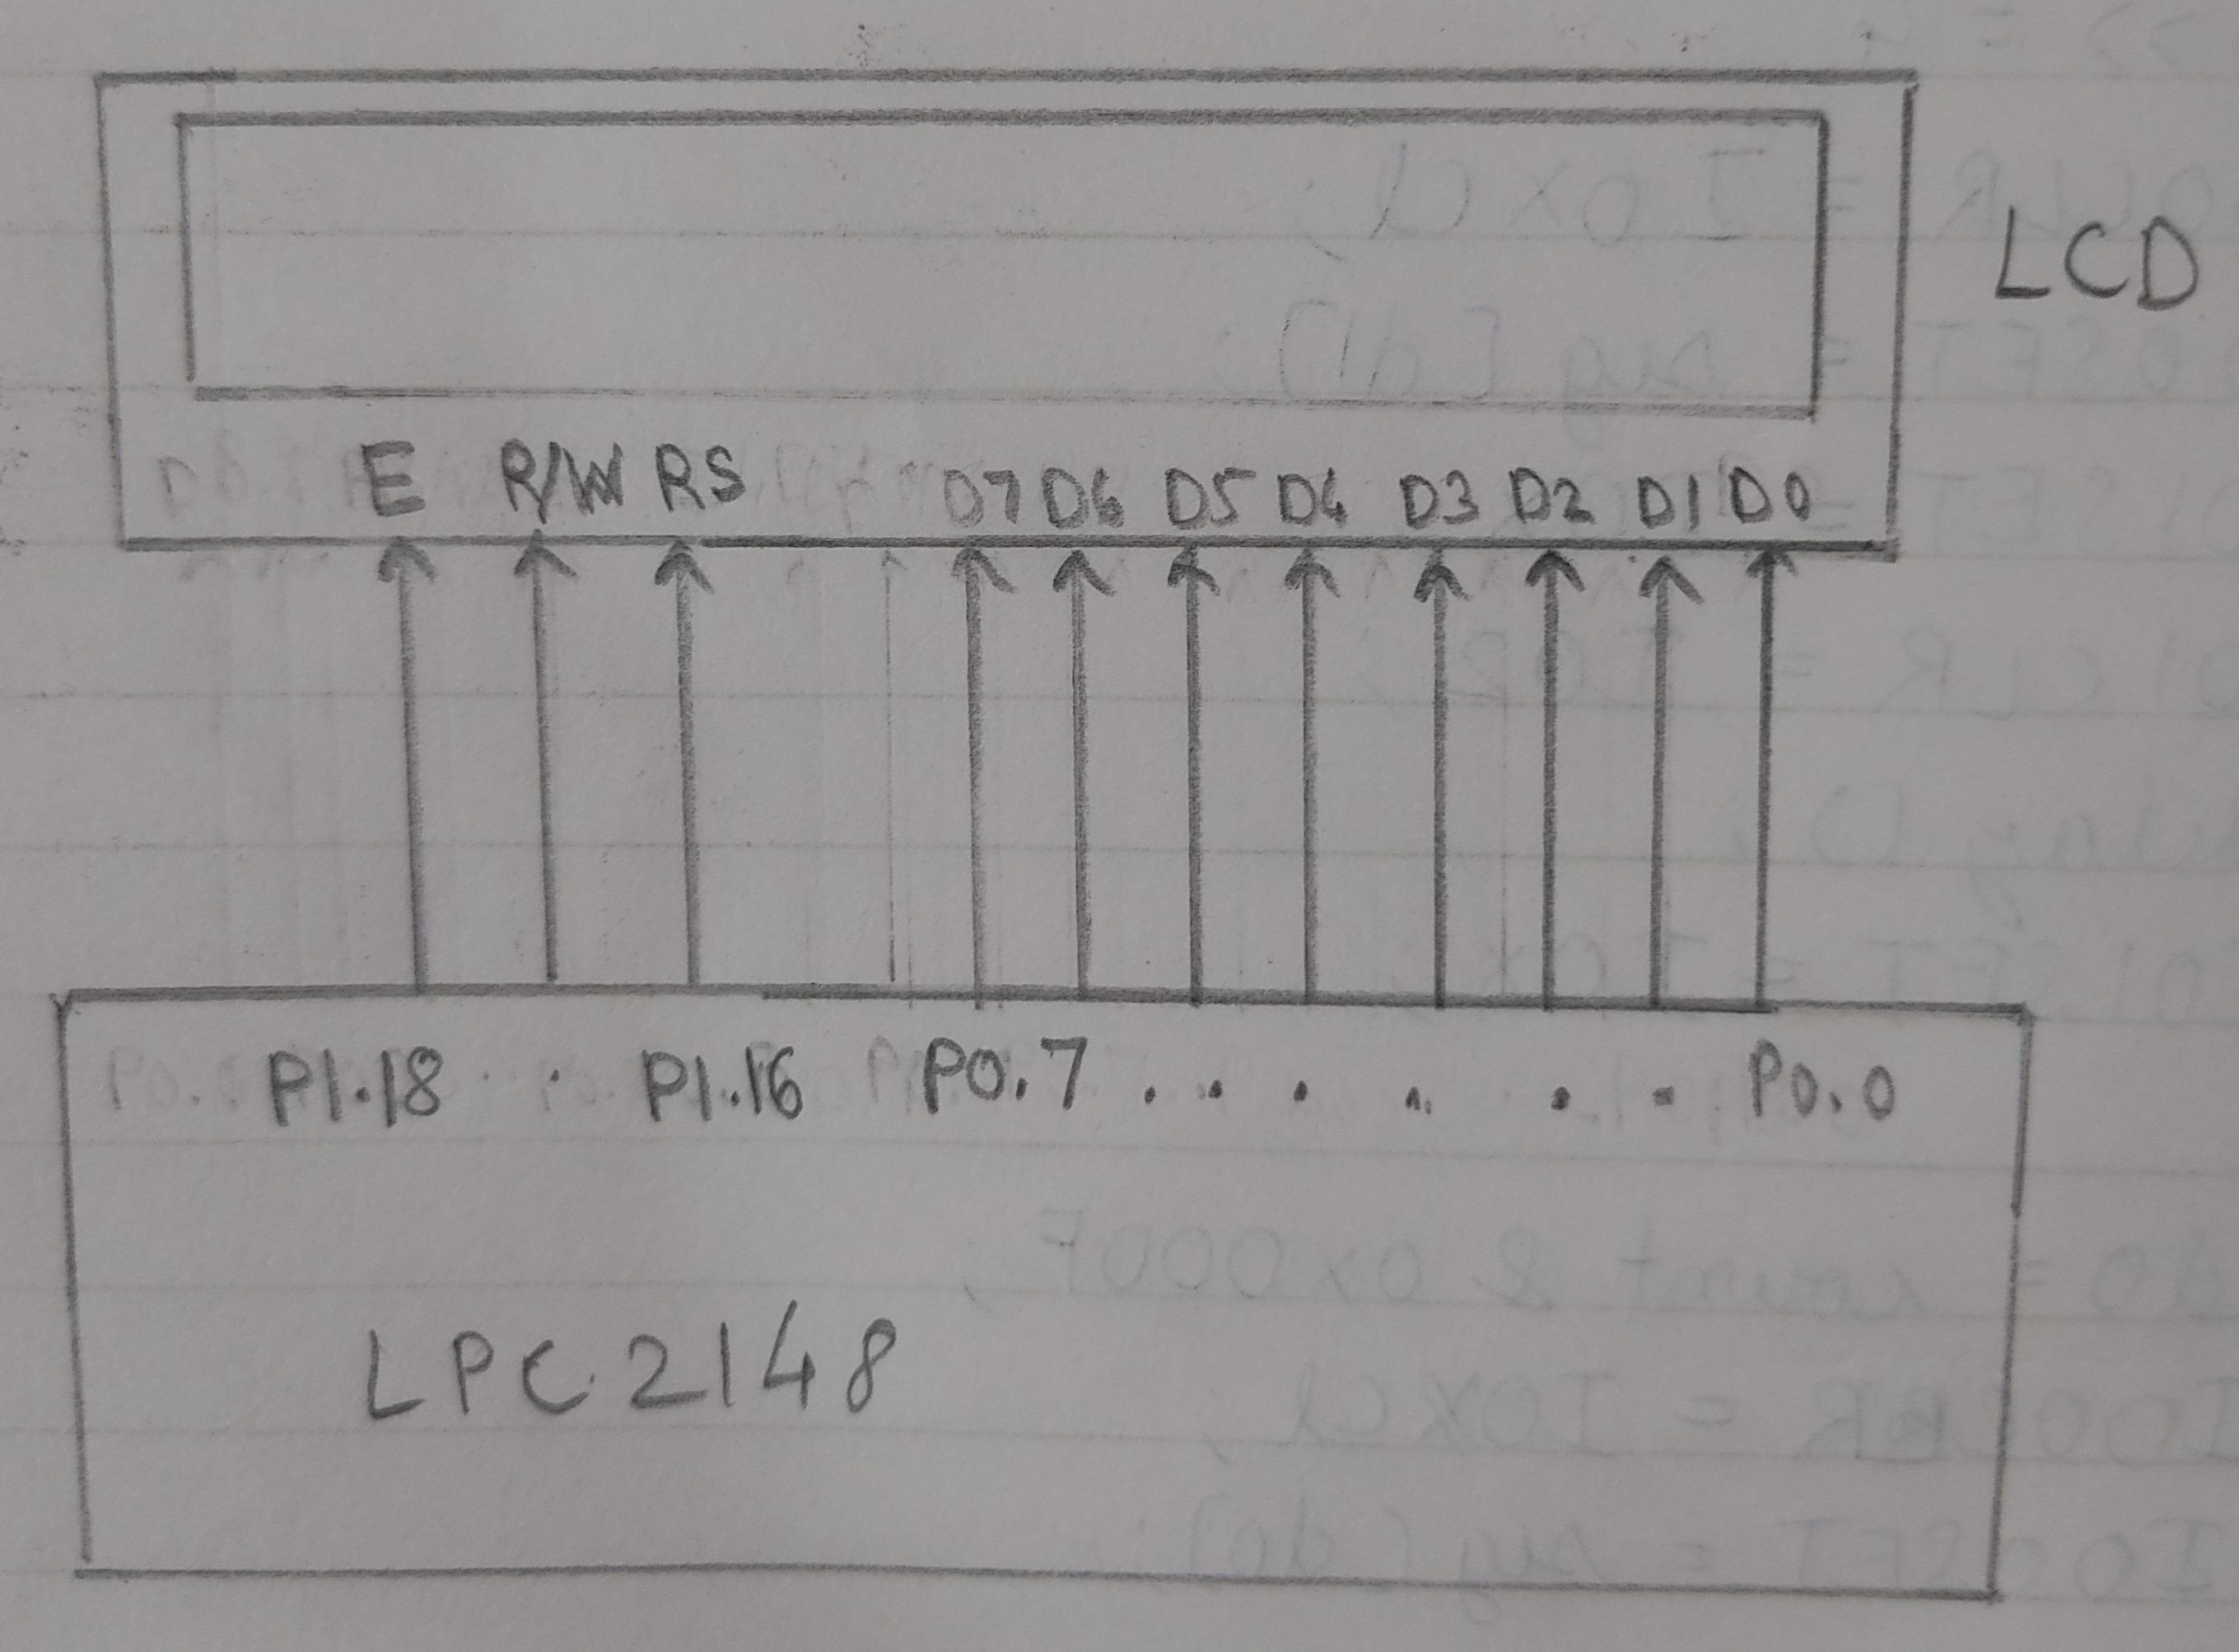 LCD
E R/W RS D7 D6 D5 D4 D3 D2 D1 D0
P1.18 . . P1.16 P0.7 . . . . . . P0.0
LPC 2148